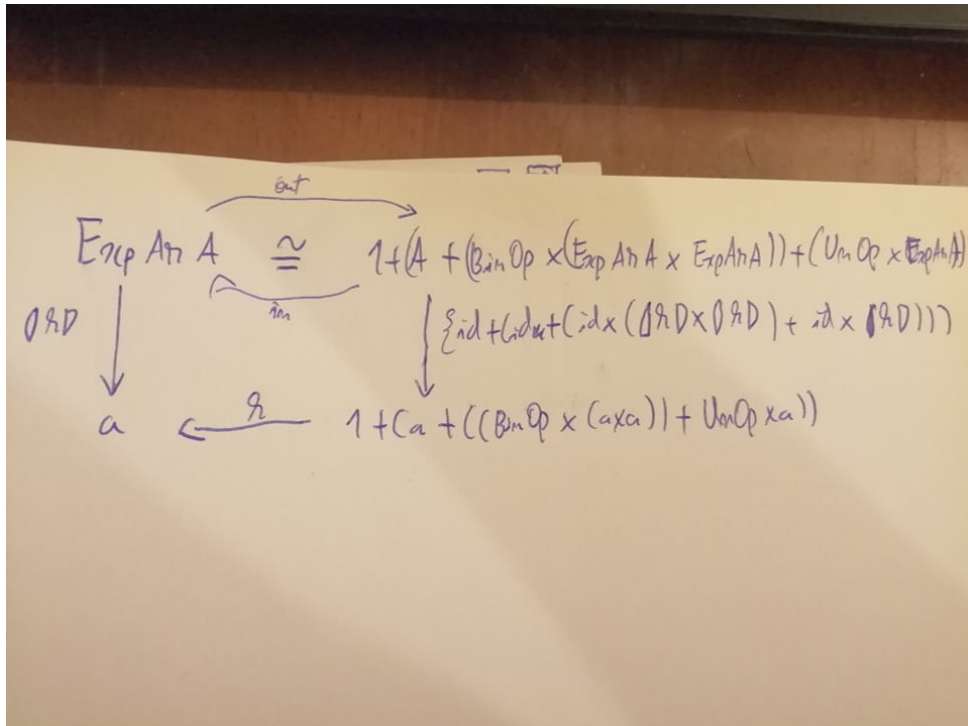 out
ExpAr A ≅ 1+(A + (BinOp × (ExpAr A × ExpAr A)) + (UnOp × ExpAr A)
in
{id+(id+(id×( × ) + id × )))
a ← g 1+(a + ((BinOp × (a×a)) + UnOp×a))